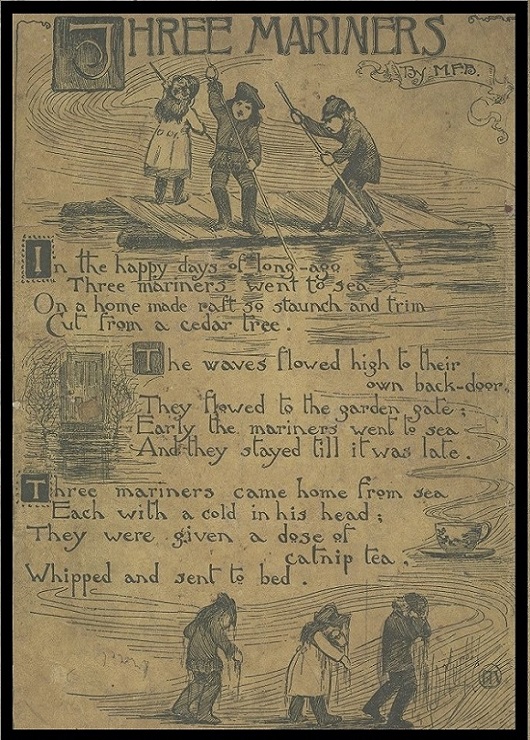 THREE MARINERS
By M.F.B.
In the happy days of long-ago
Three mariners went to sea
On a home made raft so staunch and trim
Cut from a cedar tree.
The waves flowed high to their
own back-door,
They flowed to the garden gate;
Early the mariners went to sea
And they stayed till it was late.
Three mariners came home from sea
Each with a cold in his head;
They were given a dose of
catnip tea,
Whipped and sent to bed.